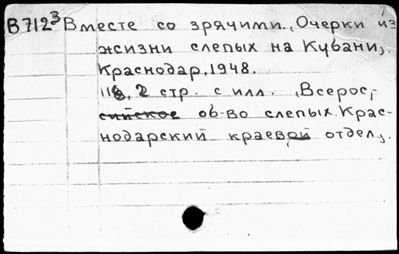 В712³ Вместе со зрячими. (Очерки из
жизни слепых на Кубани).
Краснодар, 1948.
118, 2 стр. с илл. (Всерос-
сийское об-во слепых. Крас-
нодарский краевой отдел).